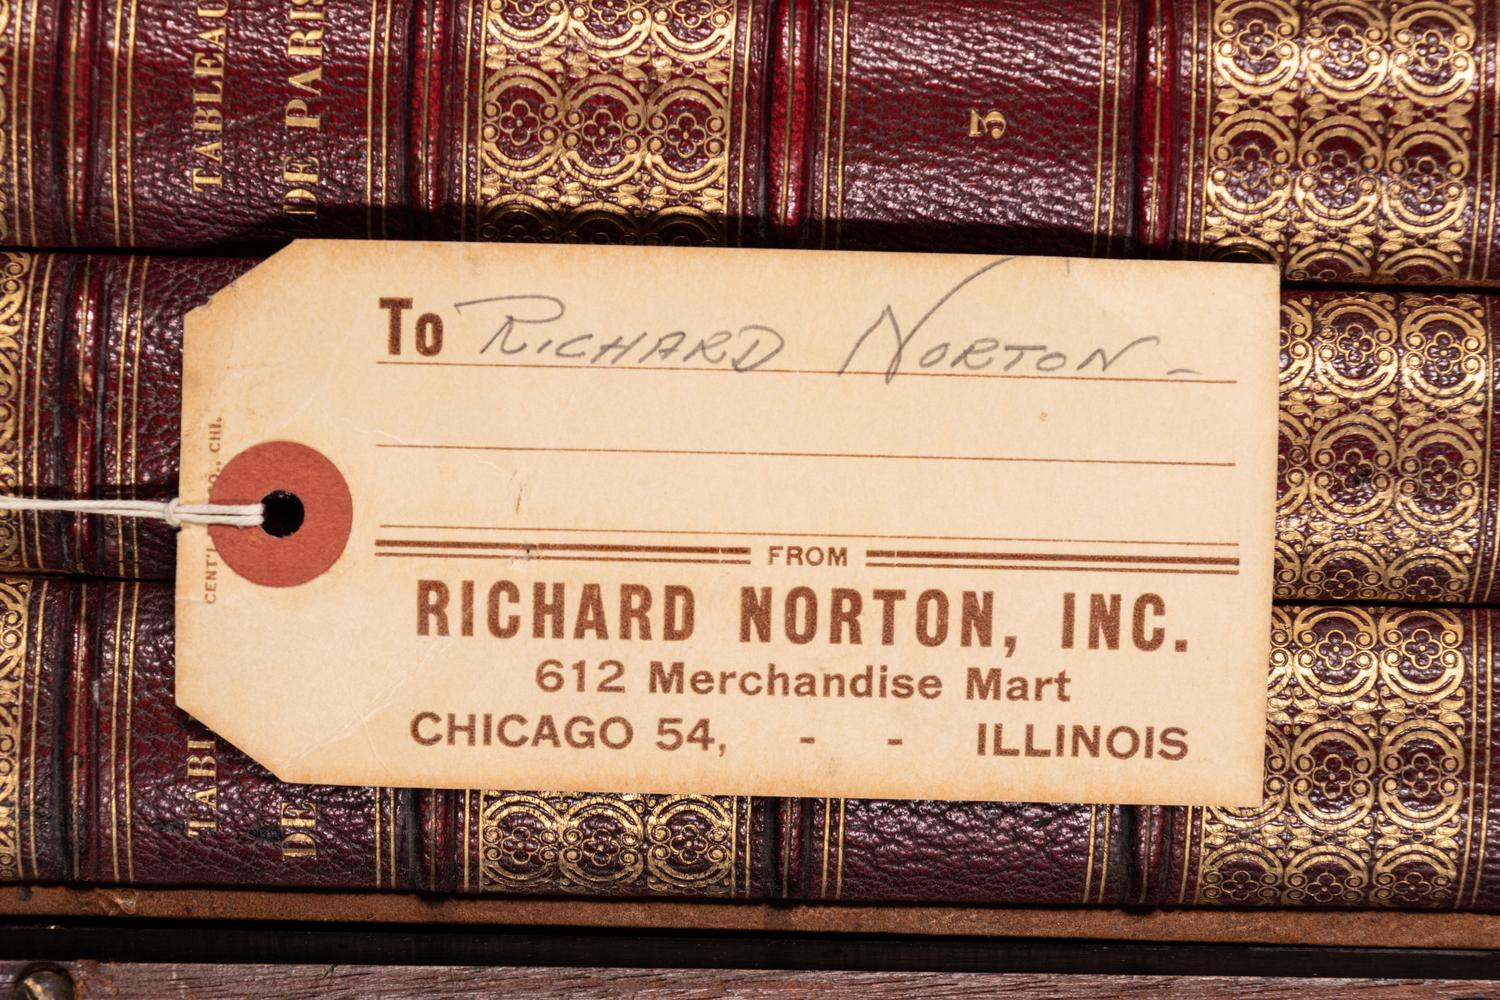 TABLEAU
DE PARIS
5
To RICHARD NORTON -
CENT'L CO., CHI.
FROM
RICHARD NORTON, INC.
612 Merchandise Mart
CHICAGO 54, - - ILLINOIS
TABL
DE